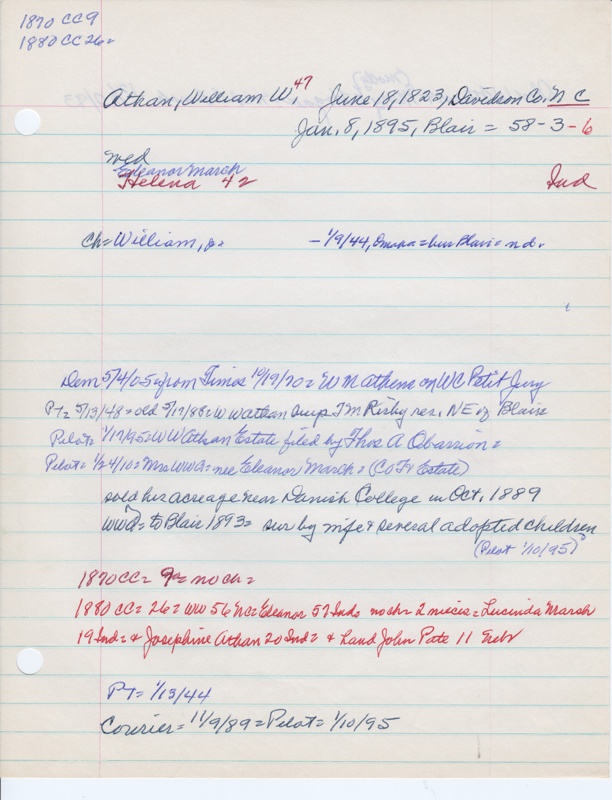 1870 CC 9
1880 CC 26=
Athan, William W, 47 June 18, 1823, Davidson Co. N C
Jan. 8, 1895, Blair = 58-3-6
wed
Eleanor March
Helena 42 Ind
Ch= William, Jr. - 1/9/44, Omaha = bur Blair = n.d.
Dem 5/4/05 = from Times 10/19/70 = W M Athens on WC Petit Jury
PT= 5/13/48 = old 5/17/88 = W W Athan buys T M Rigby res. NE of Blair
Pilot= 1/17/95 = W W Athan Estate filed by Thos A
Pilot= 1/24/10 = Mrs WWA = nee Eleanor March = (Co Tr Estate)
sold his acreage near Danish College in Oct, 1889
WWA = to Blair 1893 = sur by wife & several adopted children
(Pilot 1/10/95)
1870 CC= 9= no ch=
1880 CC= 26= WW 56 NC= Eleanor 57 Ind= no ch= 2 nieces= Lucinda March
19 Ind= & Josephine Athan 20 Ind= & hand John Pate 11 Nebr
PT= 1/13/44
Courier= 11/9/89 = Pilot= 1/10/95